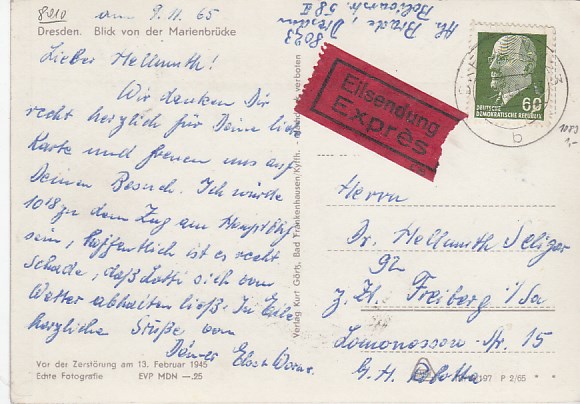 8210 am 9.11.65
Dresden. Blick von der Marienbrücke
Lieber Hellmuth!
Wir danken Dir
recht herzlich für Deine liebe
Karte und freuen uns auf
Deinen Besuch. Ich würde
1018 zu dem Zug am Hauptbhf
sein, hoffentlich ist es recht
schade, daß Lotti sich vom
Wetter abhalten ließ. In Eile
herzliche Grüße von
Deiner
Vor der Zerstörung am 13. Februar 1945
Echte Fotografie EVP MDN —.25
Verlag Kurt Görth, Bad Frankenhausen/Kyffh. - Nachdruck verboten
8023 Dresden
Eilsendung
Exprès
60
DEUTSCHE
DEMOKRATISCHE REPUBLIK
b
Herrn
Dr. Hellmuth Seliger
92
z. Zt. Freiberg i/Sa
Lomonossow-Str. 15
G.H.
197 P 2/65 * *